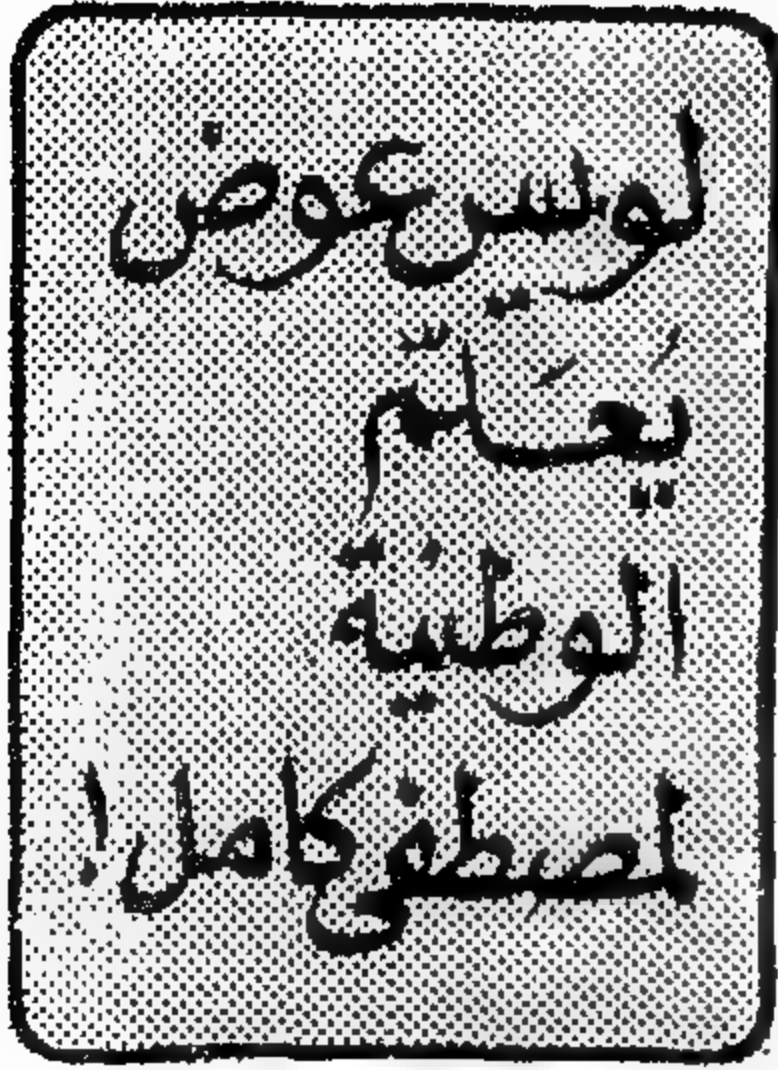 لويس عوض
يَعَلّم
الوطنية
لمصطفى كامل!